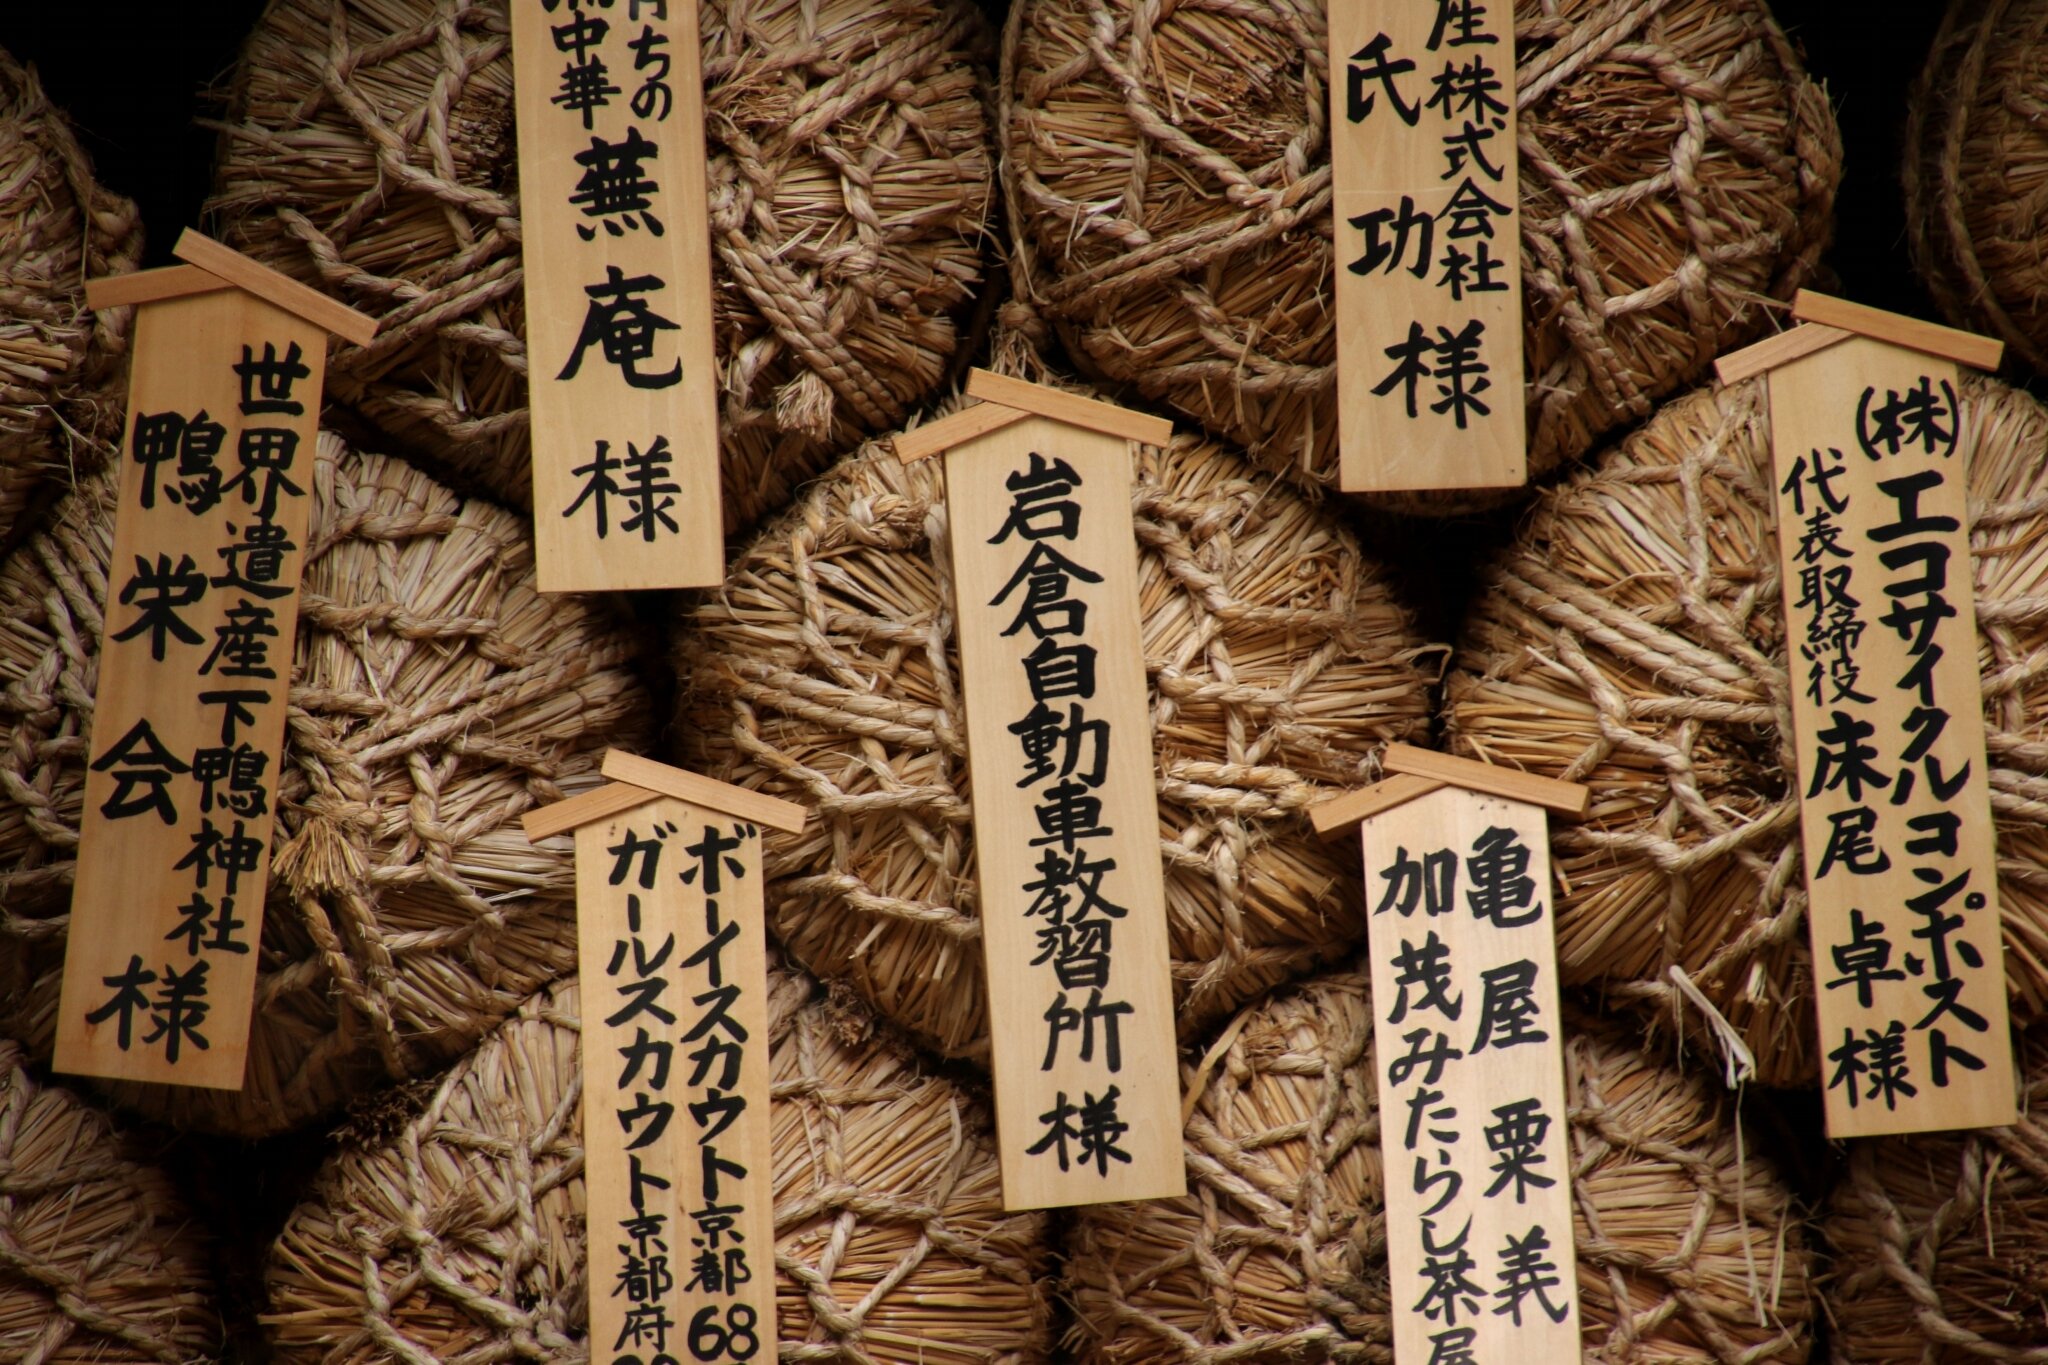 産株式会社
氏功様
ちの
中華
蕪庵様
(株)エコサイクルコンポスト
代表取締役床尾卓様
岩倉自動車教習所様
世界遺産下鴨神社
鴨栄会様
亀屋粟義
加茂みたらし茶屋
ボーイスカウト京都68
ガールスカウト京都府